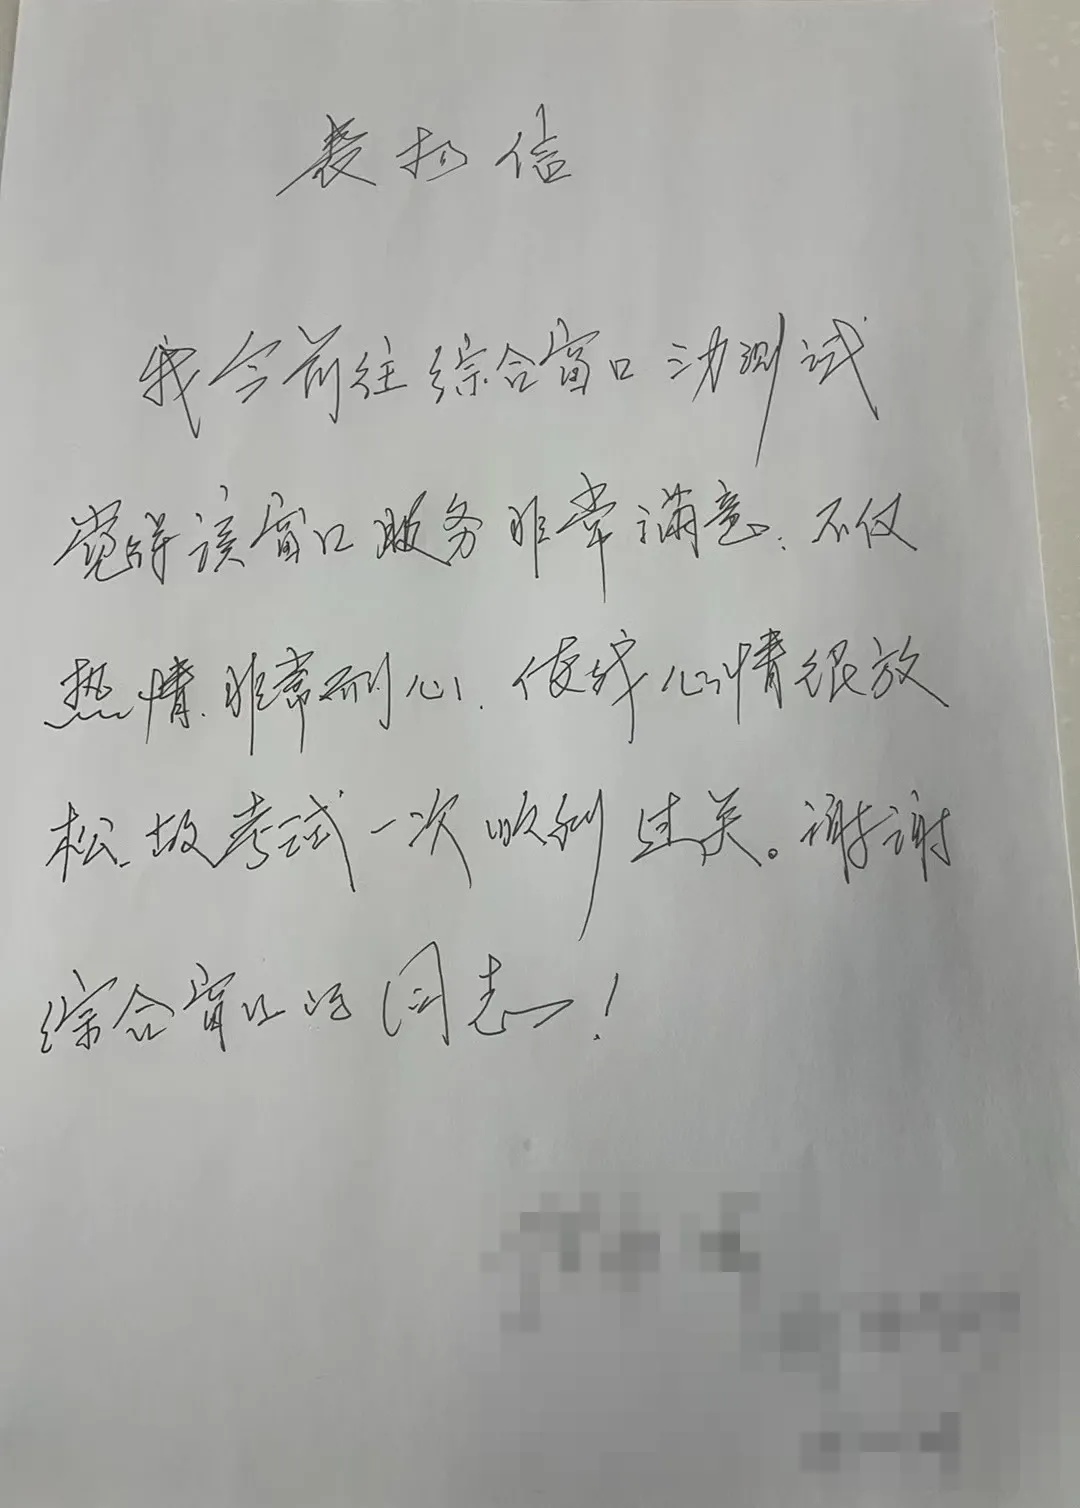 表扬信
我今前往综合窗口三力测试
觉得该窗口服务非常满意.不仅
热情.非常耐心.使我心情很放
松.故考试一次顺利过关。谢谢
综合窗口的同志!